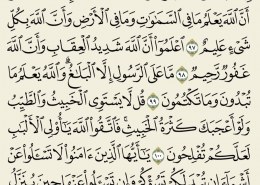 أَنَّ ٱللَّهَ يَعْلَمُ مَا فِي ٱلسَّمَٰوَٰتِ وَمَا فِي ٱلْأَرْضِ وَأَنَّ ٱللَّهَ بِكُلِّ
شَيْءٍ عَلِيمٌ ٩٧ ٱعْلَمُوٓا۟ أَنَّ ٱللَّهَ شَدِيدُ ٱلْعِقَابِ وَأَنَّ ٱللَّهَ
غَفُورٌ رَّحِيمٌ ٩٨ مَّا عَلَى ٱلرَّسُولِ إِلَّا ٱلْبَلَٰغُ ۗ وَٱللَّهُ يَعْلَمُ مَا
تُبْدُونَ وَمَا تَكْتُمُونَ ٩٩ قُل لَّا يَسْتَوِي ٱلْخَبِيثُ وَٱلطَّيِّبُ
وَلَوْ أَعْجَبَكَ كَثْرَةُ ٱلْخَبِيثِ ۚ فَٱتَّقُوا۟ ٱللَّهَ يَٰٓأُو۟لِي ٱلْأَلْبَٰبِ
لَعَلَّكُمْ تُفْلِحُونَ ١٠٠ يَٰٓأَيُّهَا ٱلَّذِينَ ءَامَنُوا۟ لَا تَسْـَٔلُوا۟ عَنْ
أَشْيَآءَ إِن تُبْدَ لَكُمْ تَسُؤْكُمْ وَإِن تَسْـَٔلُوا۟ عَنْهَا حِينَ يُنَزَّلُ